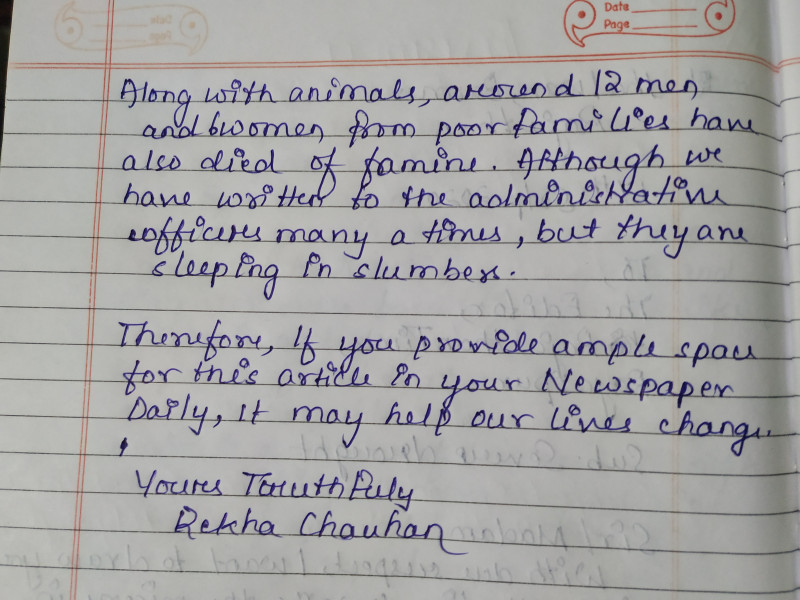 Date
Page
Along with animals, around 12 men
and 6women from poor families have
also died of famine. Although we
have written to the administrative
officers many a times, but they are
sleeping in slumbers.
Therefore, If you provide ample space
for this article in your Newspaper
Daily, it may help our lives change.
Yours Truthfuly
Rekha Chauhan